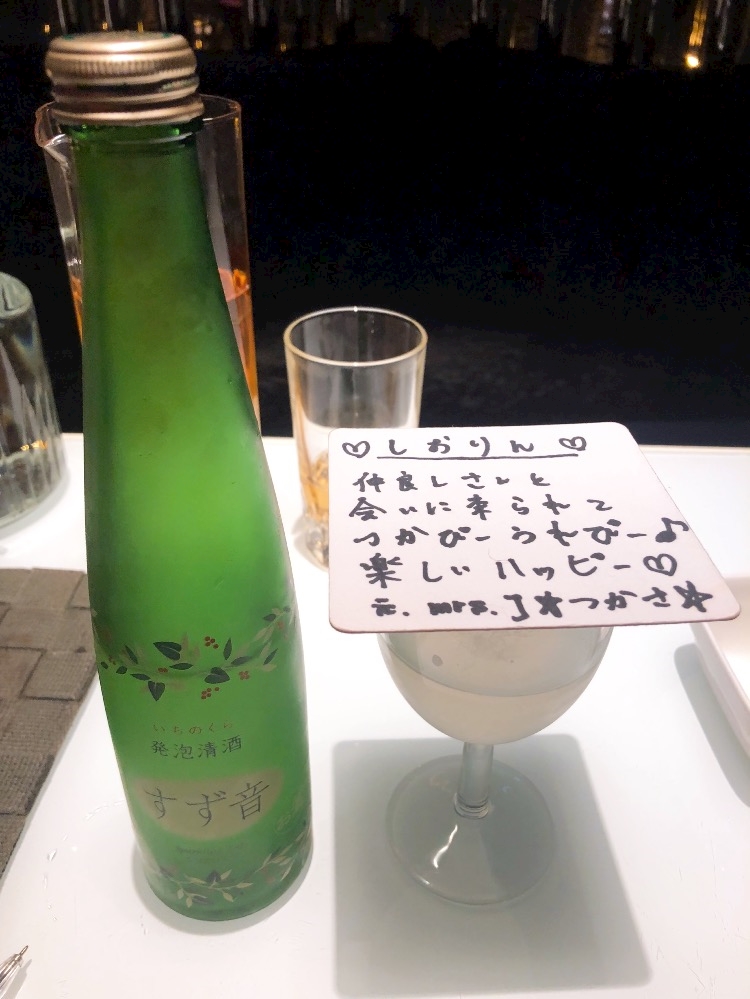 ♡しおりん♡
仲良しさんと
会いに来られて
つかぴーうれぴー♪
楽しいハッピー♡
元.mrs.J★つかさ★
いちのくら
発泡清酒
すず音